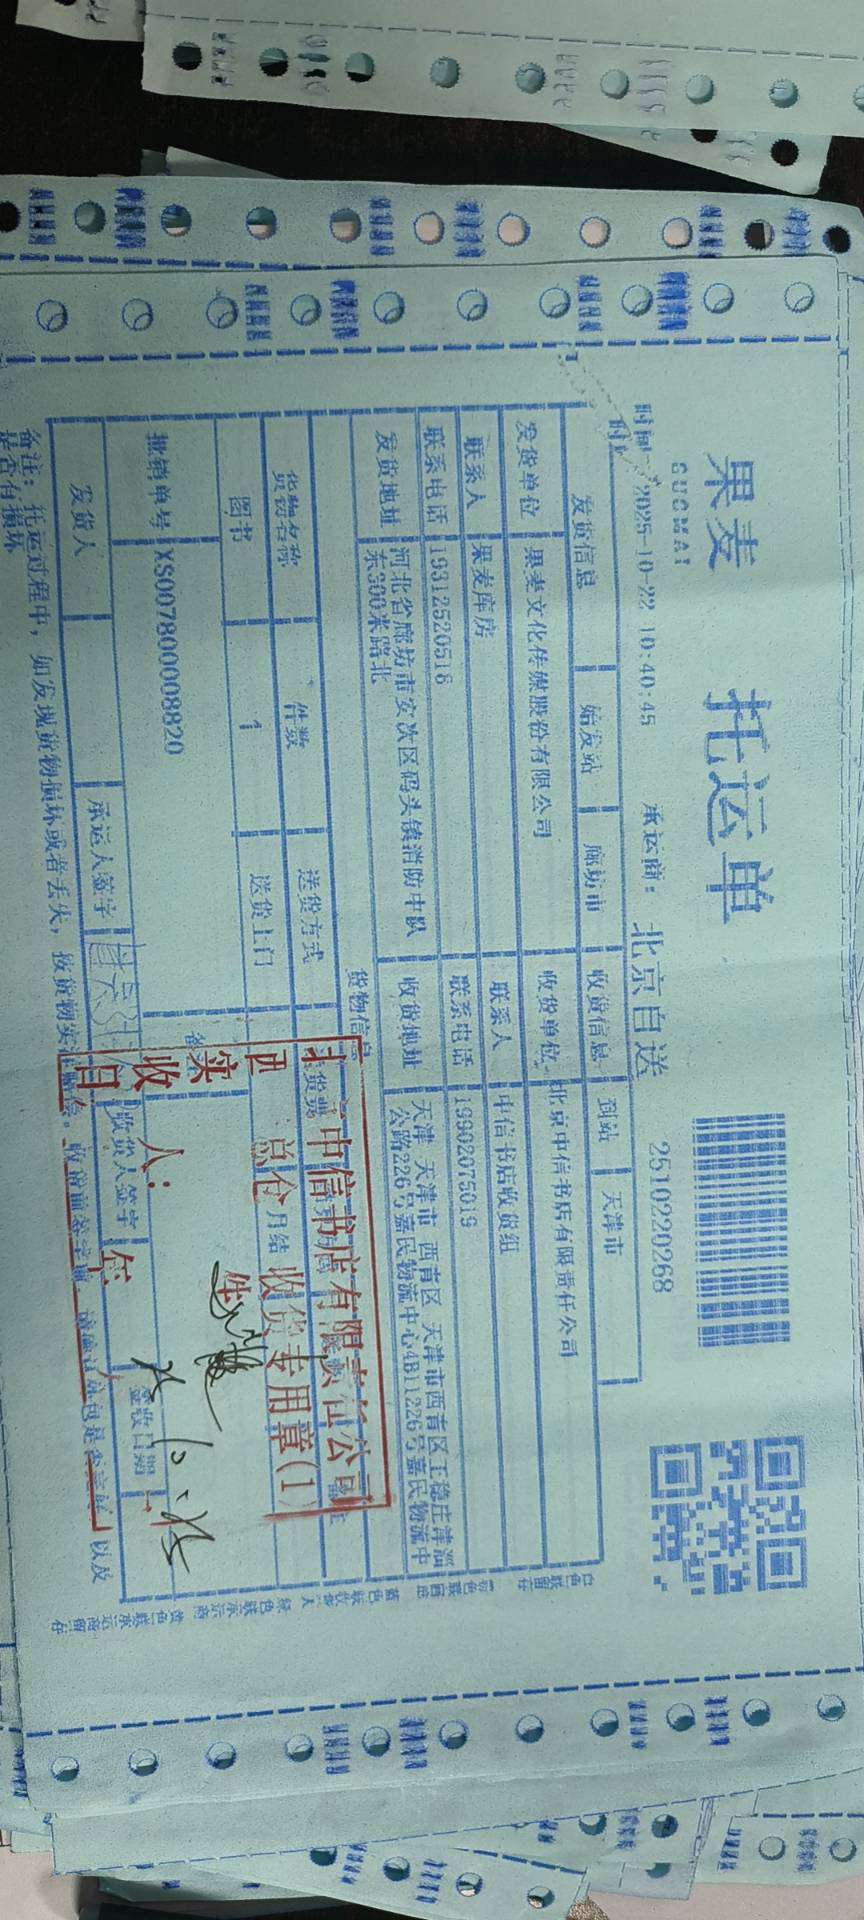 果麦
GUOMAI
托运单
时间 2025-10-22 10:40:45
承运商： 北京自送
2510220268
发货信息 始发站 廊坊市 收货信息 到站 天津市
发货单位 果麦文化传媒股份有限公司 收货单位 北京中信书店有限责任公司
联系人 果麦库房 联系人 中信书店收货组
联系电话 19312520516 联系电话 19902075019
发货地址 河北省廊坊市安次区码头镇消防中队
东300米路北
收货地址 天津 天津市 西青区 天津市西青区王稳庄津淄
公路226号嘉民物流中心4B11226号嘉民物流中
货物信息
货物名称 件数 送货方式
图书 1 送货上门 月结
批销单号 XS007800008820
发货人 承运人签字 收货人签字 签收日期
备注：托运过程中，如发现货物损坏或者丢失，按货物实
以及
是否有损坏
中信书店有限责任公司
总仓 收货专用章(1)
实收
人：